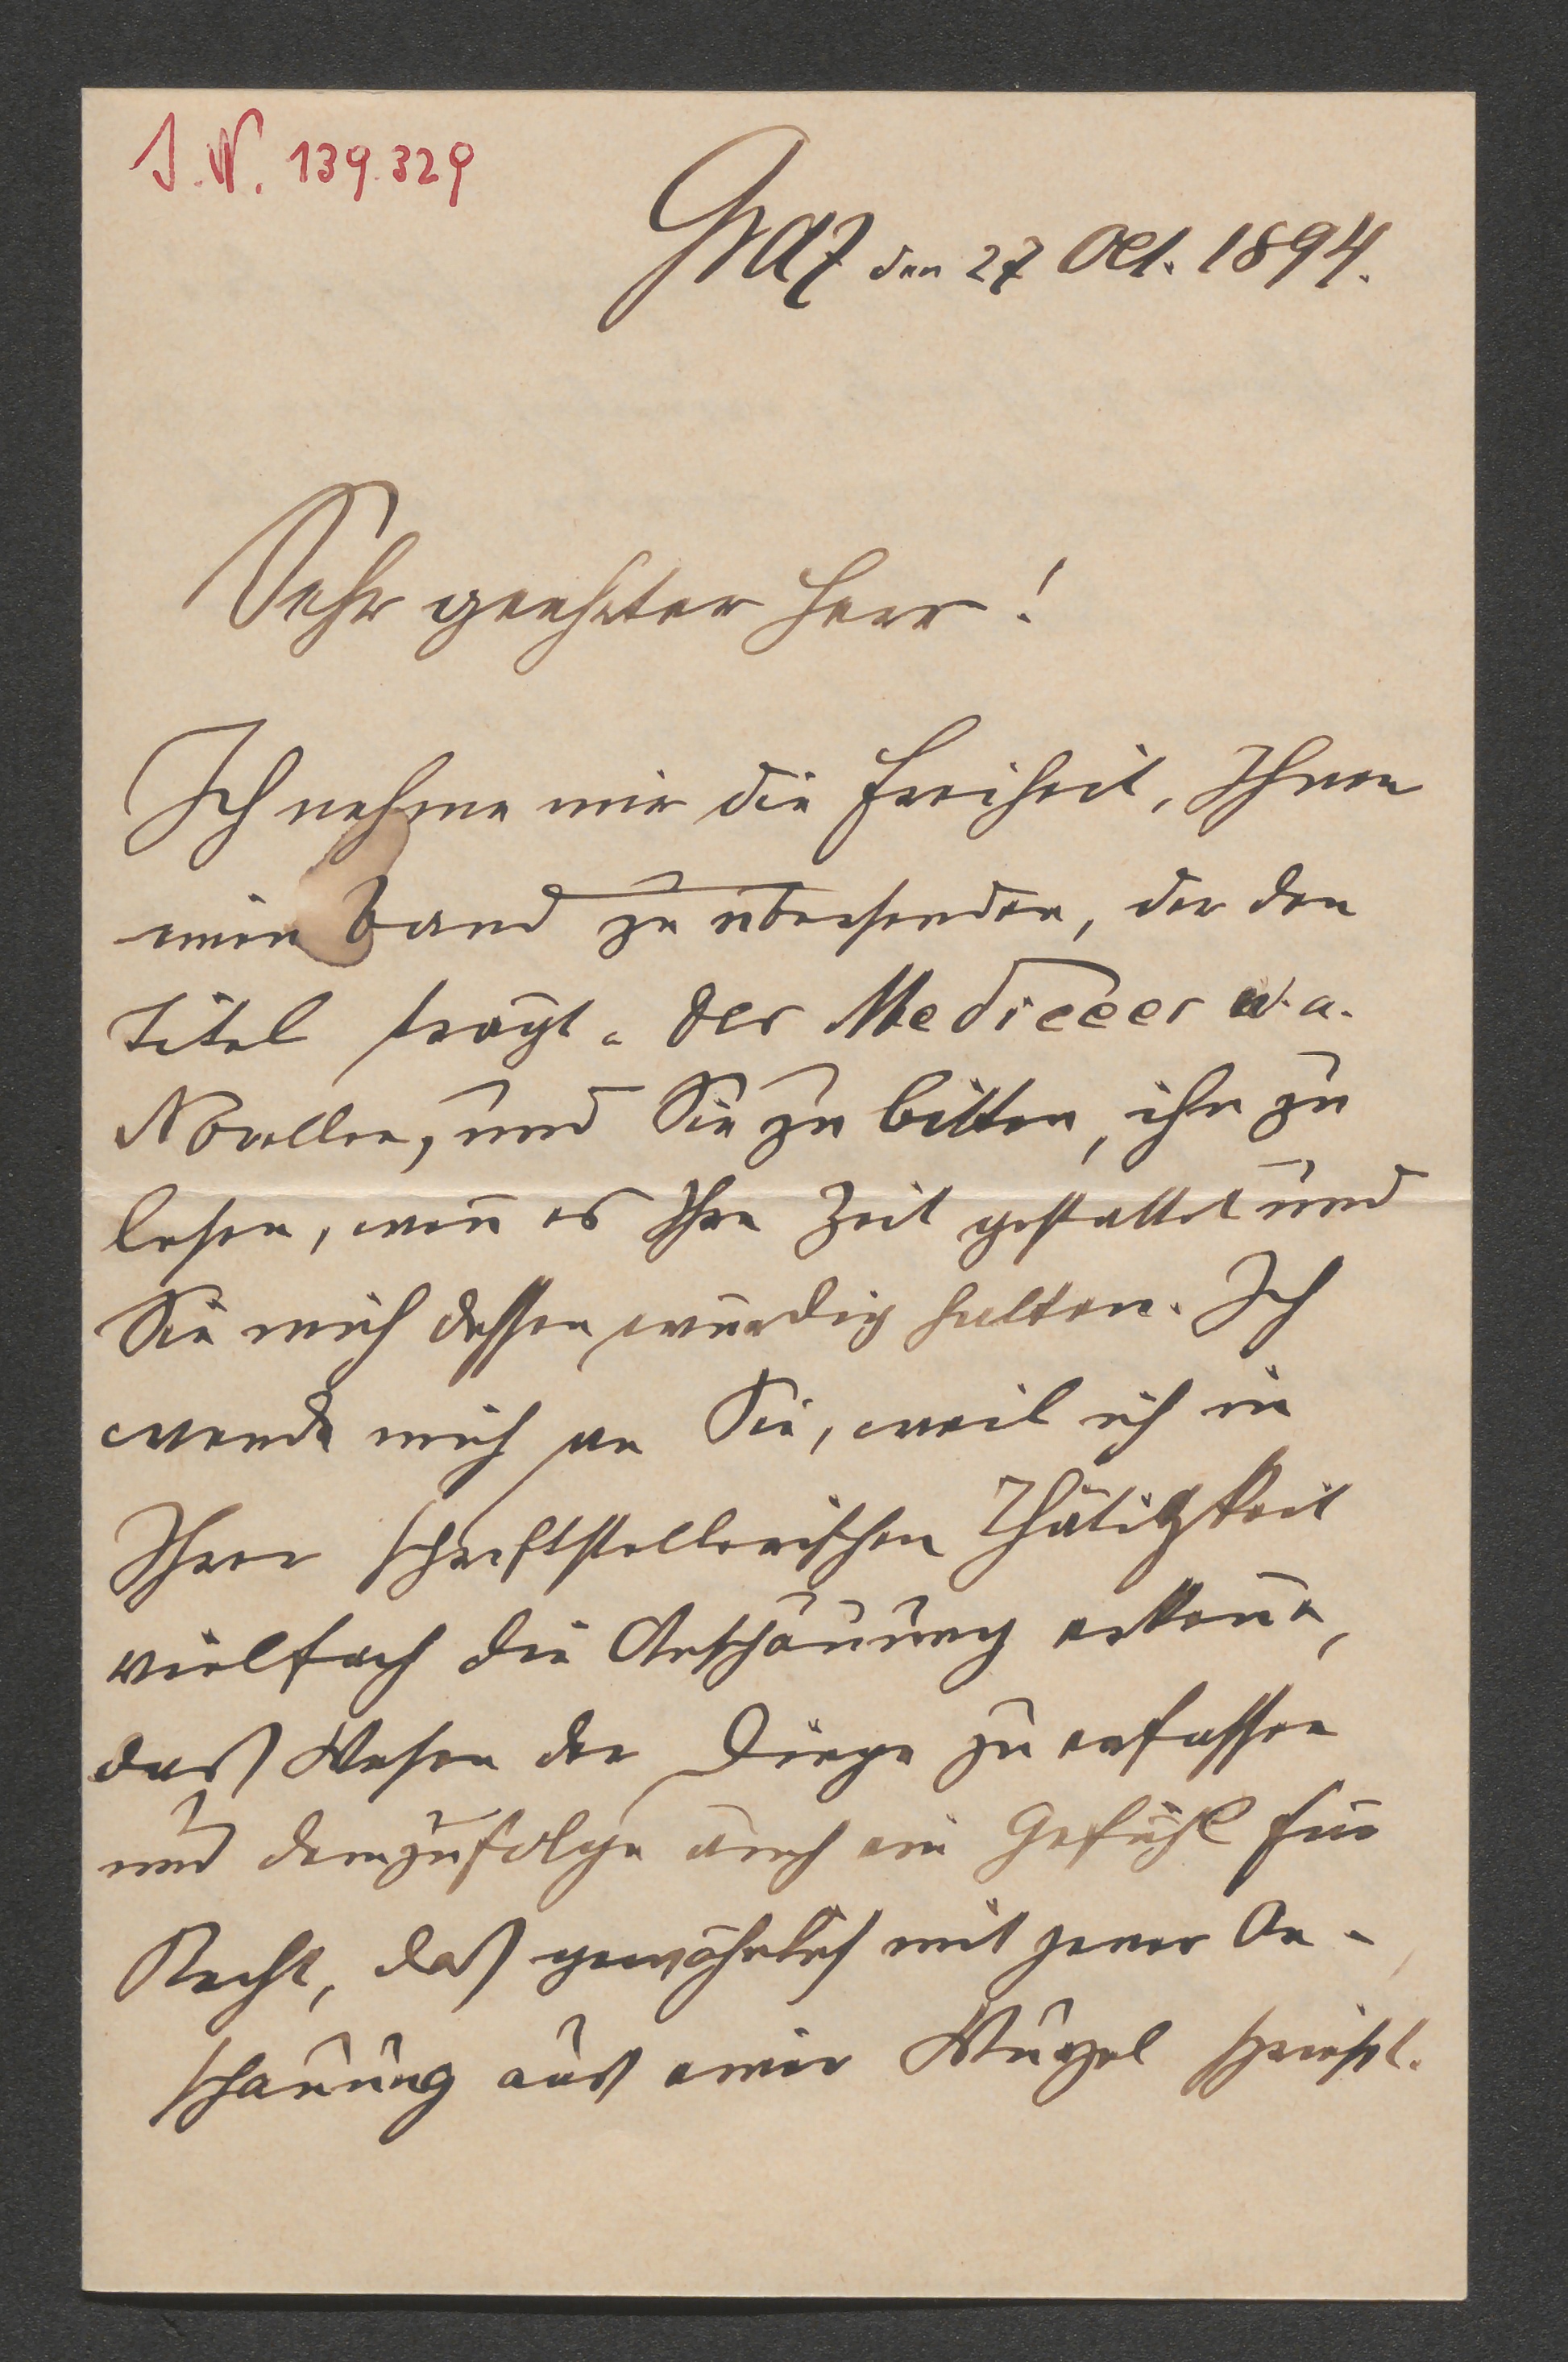 I.N. 139.329
Graz den 27 Oct. 1894.
Sehr geehrter Herr!
Ich nehme mir die Freiheit, Ihnen
einen Band zu übersenden, der den
Titel trägt „Der Mediceer u. a.
Novellen, und Sie zu bitten, ihn zu
lesen, wen̄ es Ihre Zeit gestattet und
Sie mich dessen würdig halten. Ich
wende mich an Sie, weil ich in
Ihrer schriftstellerischen Thätigkeit
vielfach die Anschauung erken̄e,
das Wesen der Dinge zu erfassen
und demzufolge auch ein Gefühl für
Recht, das gewöhnlich mit jener An-
schauung aus einer Wurzel spriesst.